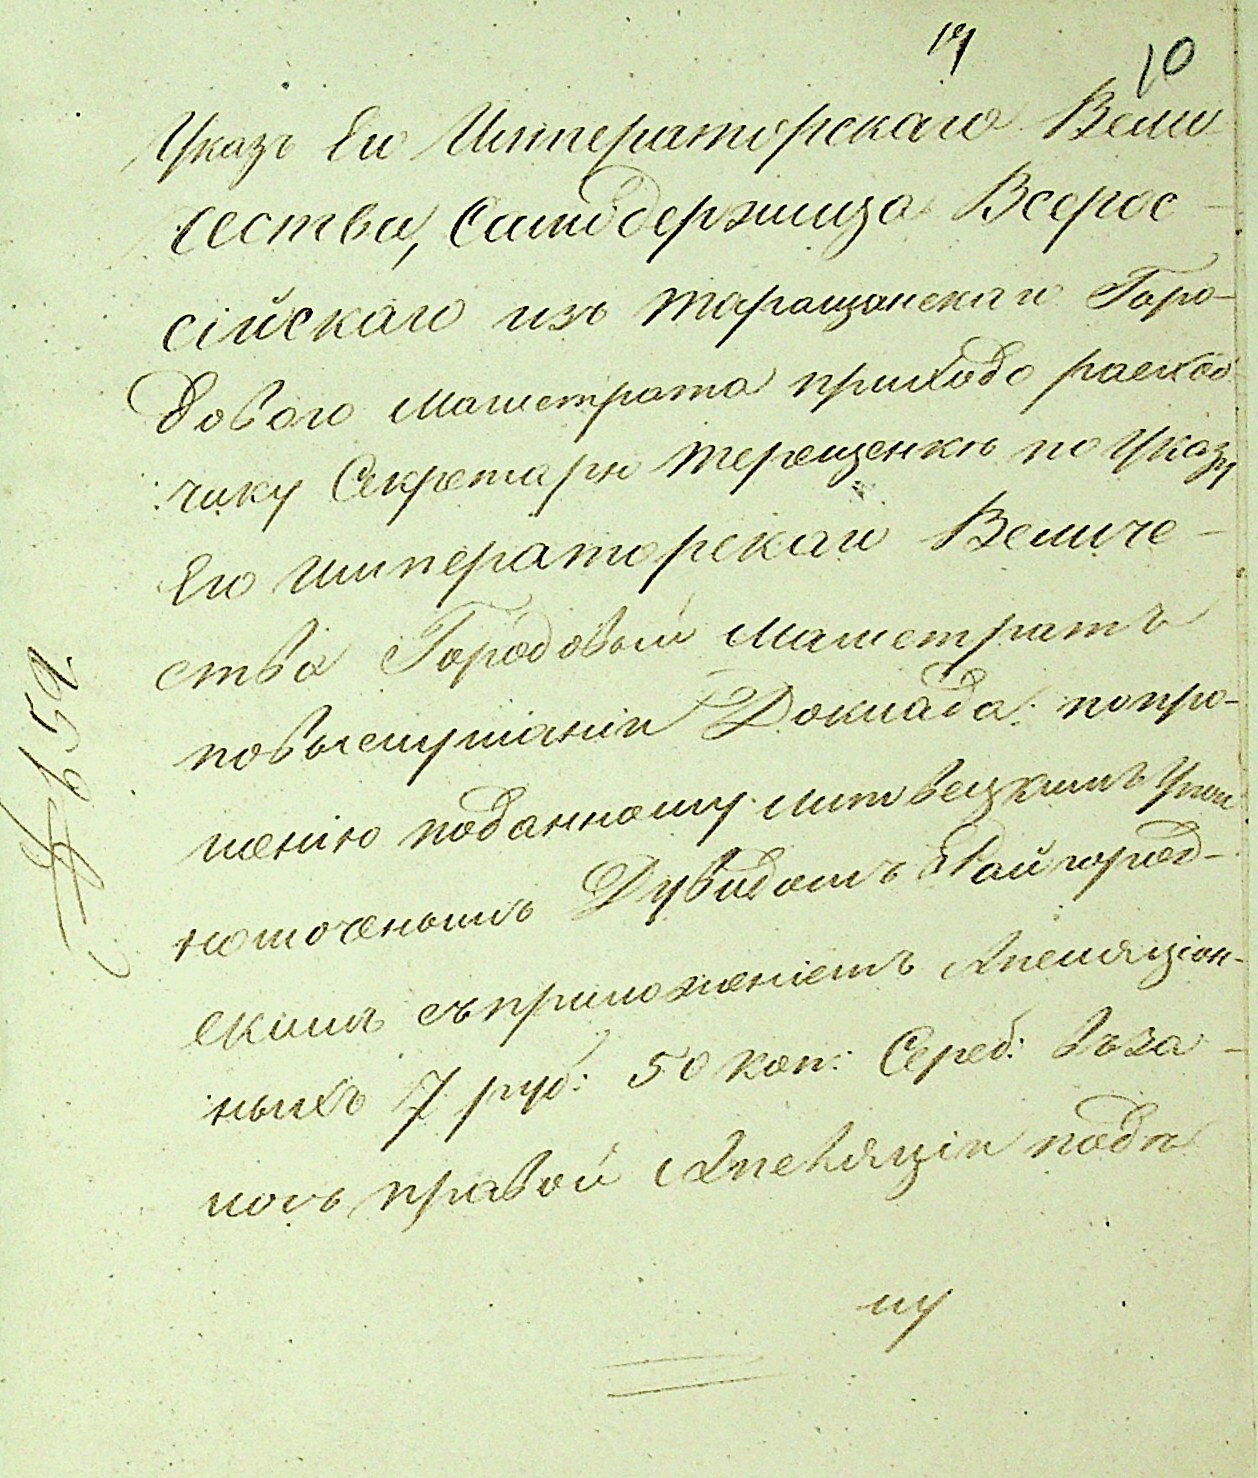 10
Указъ Его Императорскаго Вели
чества, Самодержца Всерос-
сійскаго изъ Таращанскаго Горо-
доваго Магистрата приходо расход
чику Секретарю Терещенкѣ по Указу
Его Императорскаго Величе-
ства Городовый Магистратъ
повыслушаніи Доклада: попро-
шенію поданному Литвецкимъ Упол
номоченымъ Дувидомъ Райгород-
скимъ съприложеніемъ Апеляціон-
ныхъ 7 руб: 50 коп: Сереб: Въза-
логъ правой Апеляціи подъ
№ 652